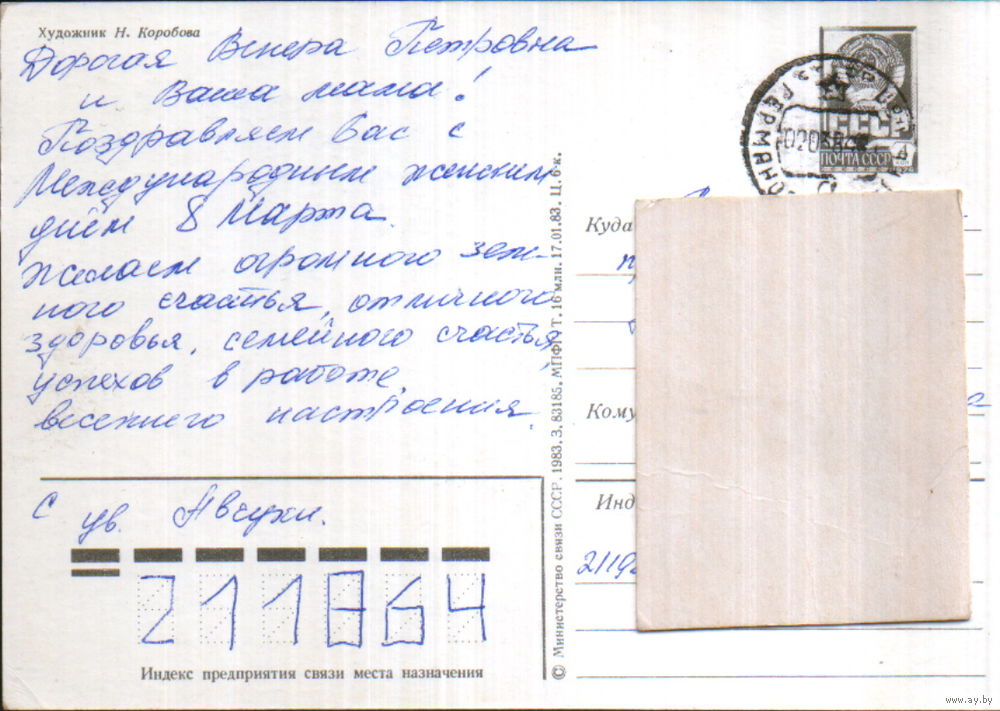 Художник Н. Коробова
Дорогая Венера Петровна
и Ваша мама!
Поздравляем Вас с
Международным женским
днём 8 Марта.
Желаем огромного зем-
ного счастья, отличного
здоровья, семейного счастья,
успехов в работе,
весеннего настроения.
С ув.
211864
Индекс предприятия связи места назначения
© Министерство связи СССР. 1983. З. 83185. МПФГ. Т. 16 млн. 17.01.83. Ц. 6 к.
СССР
ПОЧТА СССР
Куда
Кому
Инд
www.ay.by